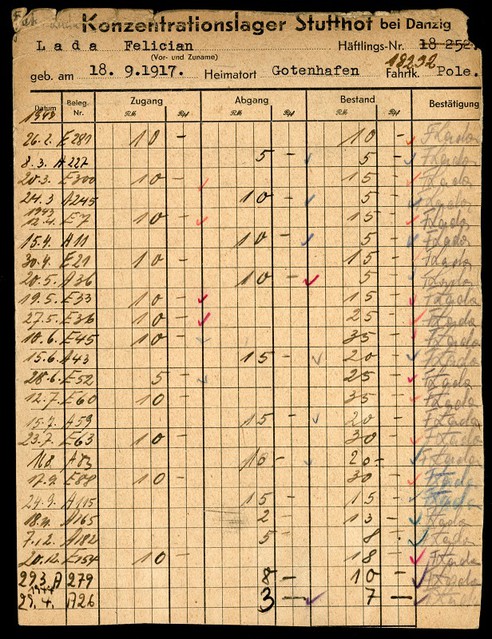 Konzentrationslager Stutthof bei Danzig
Lada Felician Häftlings-Nr. 18 252
(Vor- und Zuname) 18292
geb. am 18. 9.1917. Heimatort Gotenhafen Pole.
Datum Beleg. Nr. Zugang Abgang Bestand Bestätigung
RM Rpf RM Rpf RM Rpf
26.2. E281 10 - 10 - FLada
8.3. A227 5 - 5 - FLada
20.3. E300 10 - 15 - FLada
24.3 A245 10 - 5 - FLada
1943
12.4. E7 10 - 15 - FLada
15.4. A11 10 - 5 - FLada
30.4. E21 10 - 15 - FLada
20.5. A36 10 - 5 - FLada
19.5. E33 10 - 15 - FLada
27.5. E36 10 - 25 - FLada
10.6. E45 10 - 35 - FLada
15.6. A43 15 - 20 - FLada
28.6. E52 5 - 25 - FLada
12.7. E60 10 - 35 - FLada
15.7. A59 15 - 20 - FLada
23.7. E63 10 - 30 - FLada
A83 10 - 20 - FLada
17.9. E88 10 - 30 - FLada
24.9. A115 15 - 15 - FLada
A165 2 - 13 - FLada
7.12. A182 5 - 8 - FLada
20.12. E154 10 - 18 - FLada
29.3. A 279 8 - 10 - FLada
1944
25.4. A26 3 - 7 - FLada